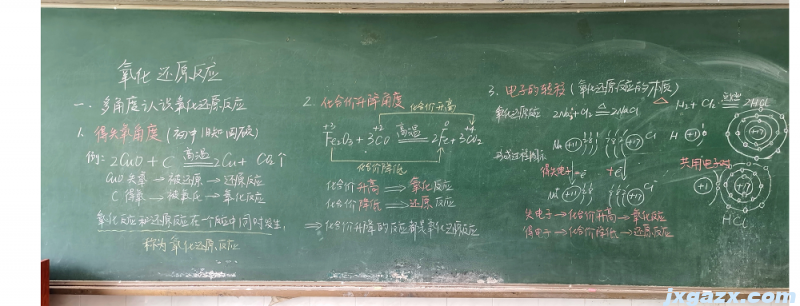 氧化还原反应
一、多角度认识氧化还原反应
1. 得失氧角度(初中旧知回顾)
例: 2CuO + C 高温 2Cu + CO₂↑
CuO 失氧 → 被还原 → 还原反应
C 得氧 → 被氧化 → 氧化反应
氧化反应和还原反应在一个反应中同时发生,
称为氧化还原反应
2. 化合价升降角度
化合价升高
+3 +2 0 +4
Fe₂O₃ + 3CO 高温 2Fe + 3CO₂
化合价降低
化合价升高 ⇒ 氧化反应
化合价降低 ⇒ 还原反应
⇒ 化合价升降的反应都是氧化还原反应
3. 电子的转移(氧化还原反应的本质)
氧化还原反应 2Na + Cl₂ △ 2NaCl
△ H₂ + Cl₂ 点燃 2HCl
Na Cl H
形成过程图示
失电子 e⁻ +e⁻
共用电子对
Na⁺ Cl⁻
HCl
失电子 → 化合价升高 → 氧化反应
得电子 → 化合价降低 → 还原反应
ixgazx.com